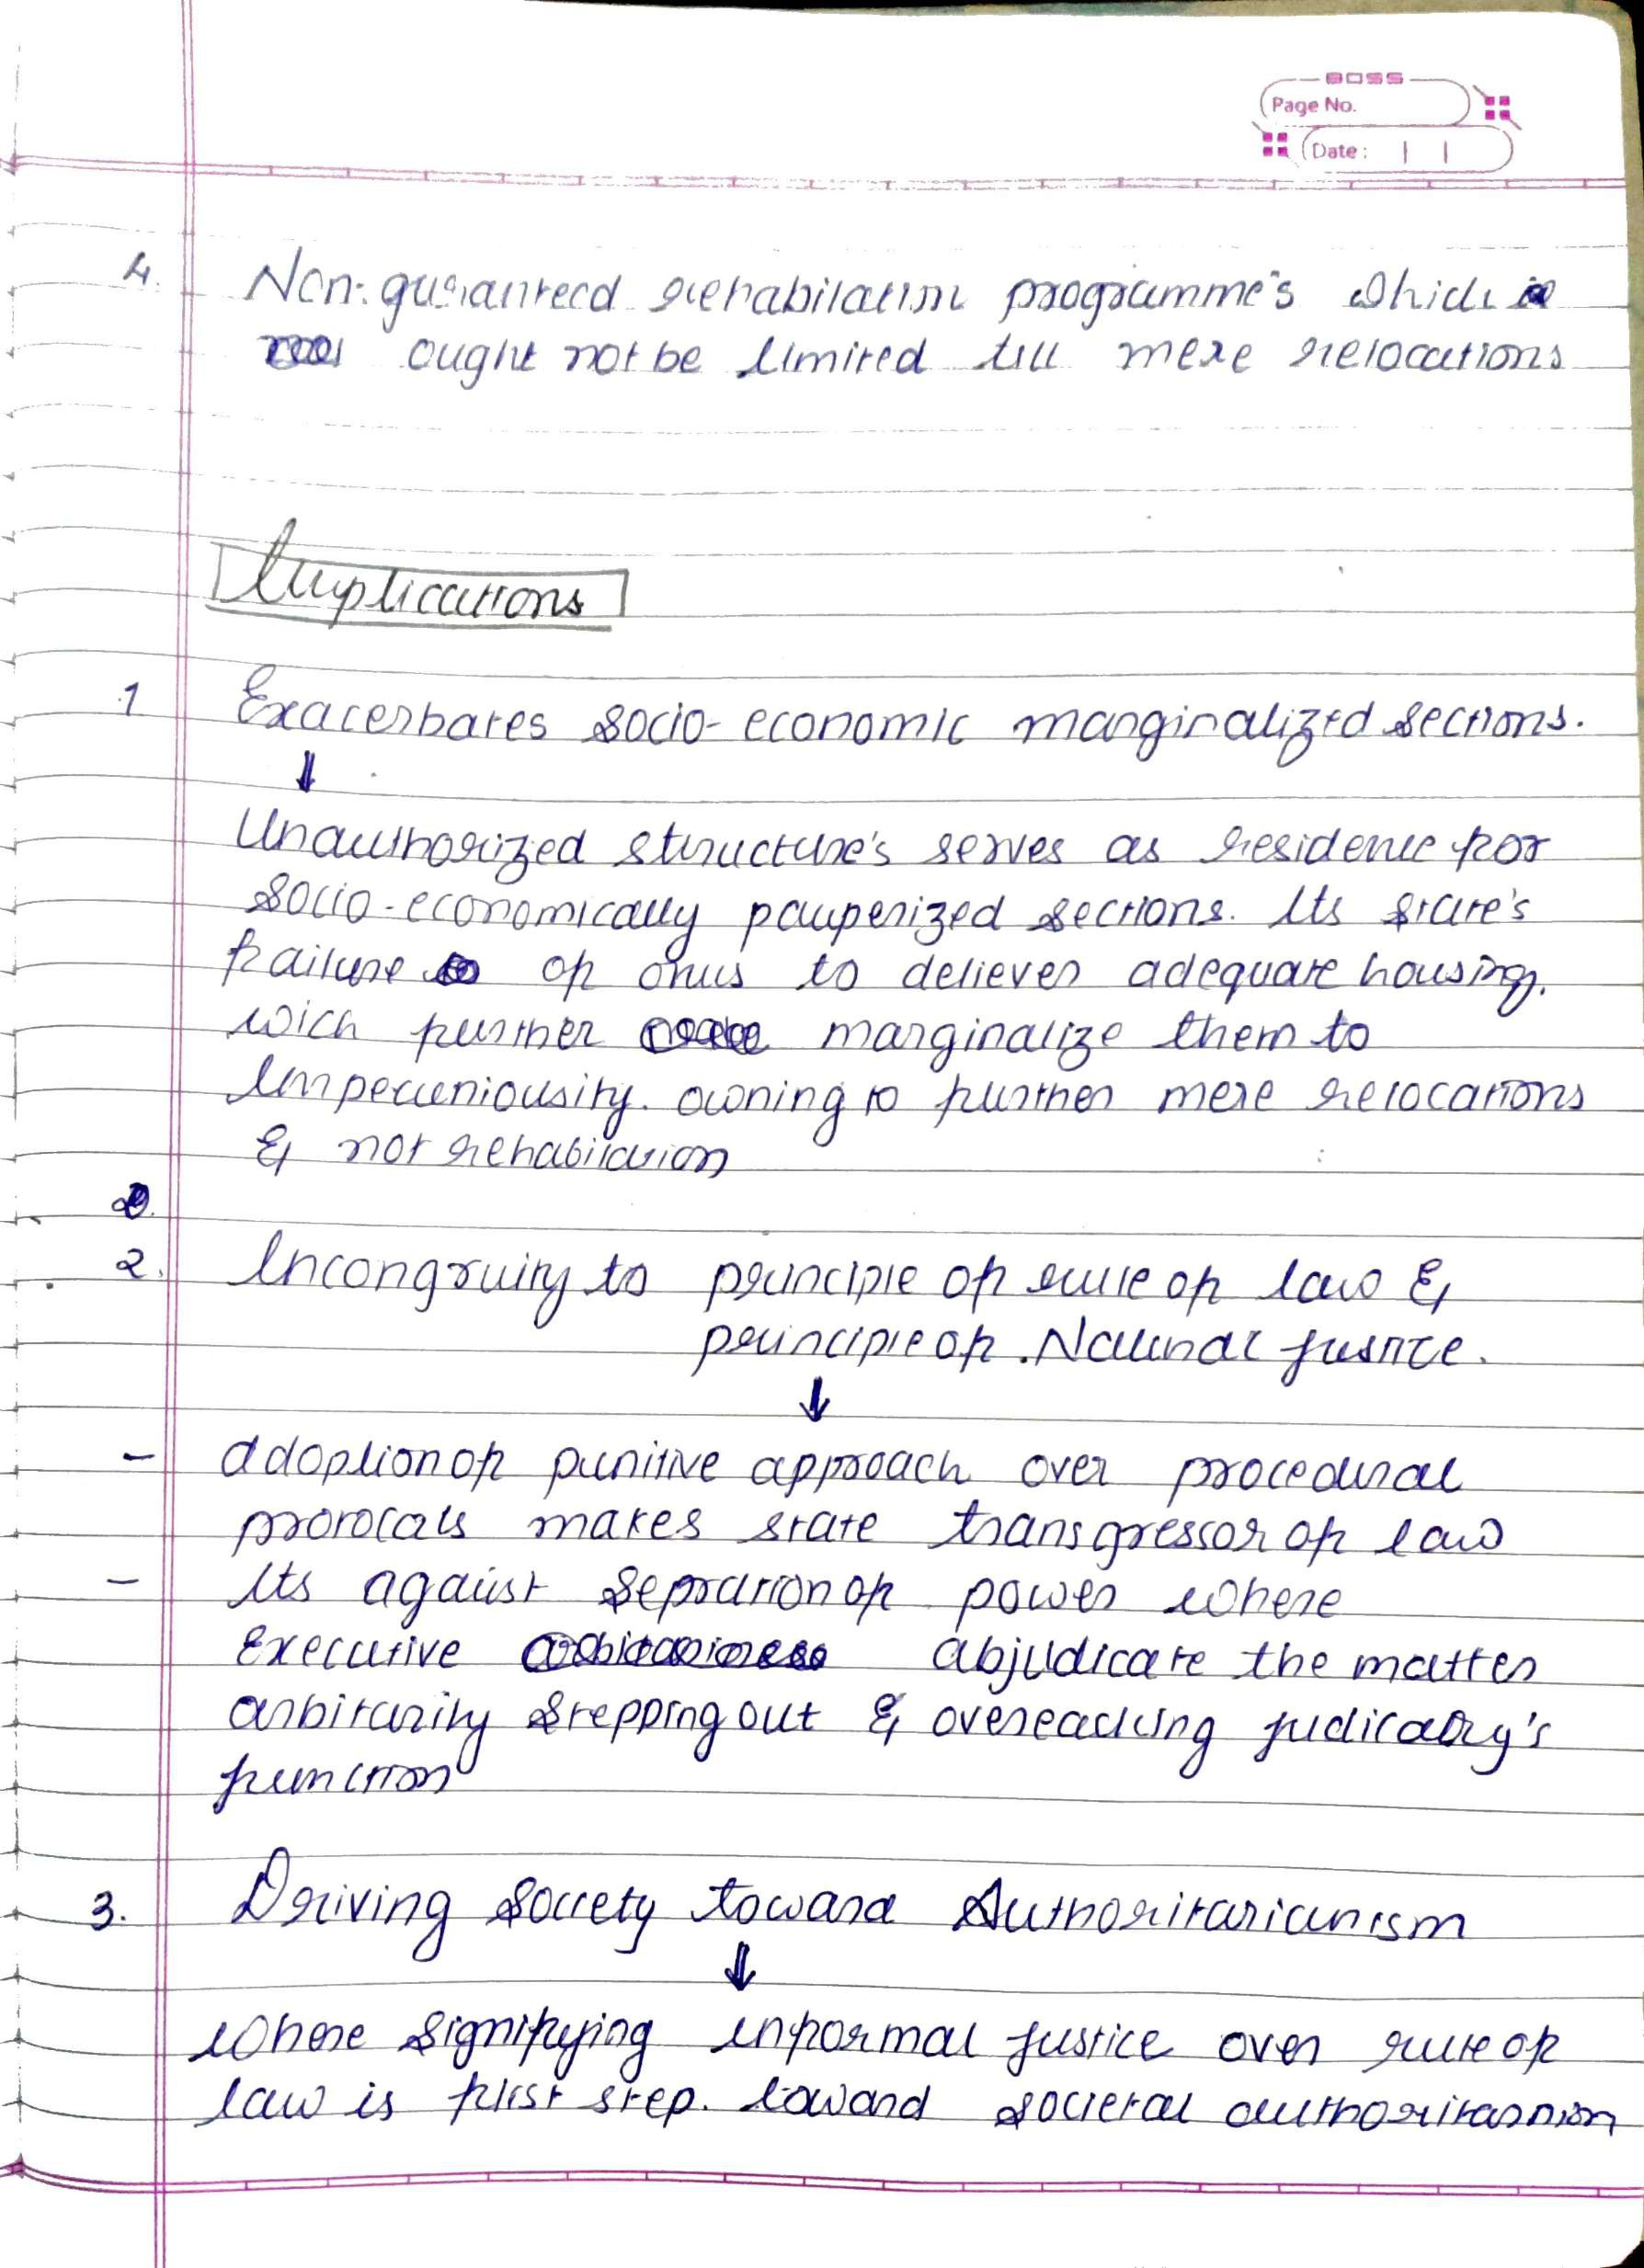 BOSS
Page No.
Date :
4. Non-guranteed rehabilation programme's which
ought not be limited till mere relocations
Implications
1 Exacerbates socio-economic marginalized sections.
↓
Unauthorized structure's serves as residence for
socio-economically pauperized sections. Its state's
failure of onus to deliever adequate housing.
wich further marginalize them to
Impecuniousity. owning to further mere relocations
& not rehabilation
2. Incongruity to principle of rule of law &
principle of Natural justice.
↓
- adoption of punitive approach over procedural
protocals makes state transgressor of law
- Its against Sepration of power where
Executive abjudicate the matter
arbitarity stepping out & overeaching judicairy's
function
3. Driving society toward Authoritarianism
↓
where signifying informal justice over rule of
law is first step. toward societal